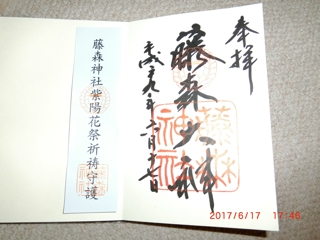 奉拝
藤森大神
平成二十九年六月十七日
藤森神社
藤森神社紫陽花祭祈祷守護
2017/6/17 17:46